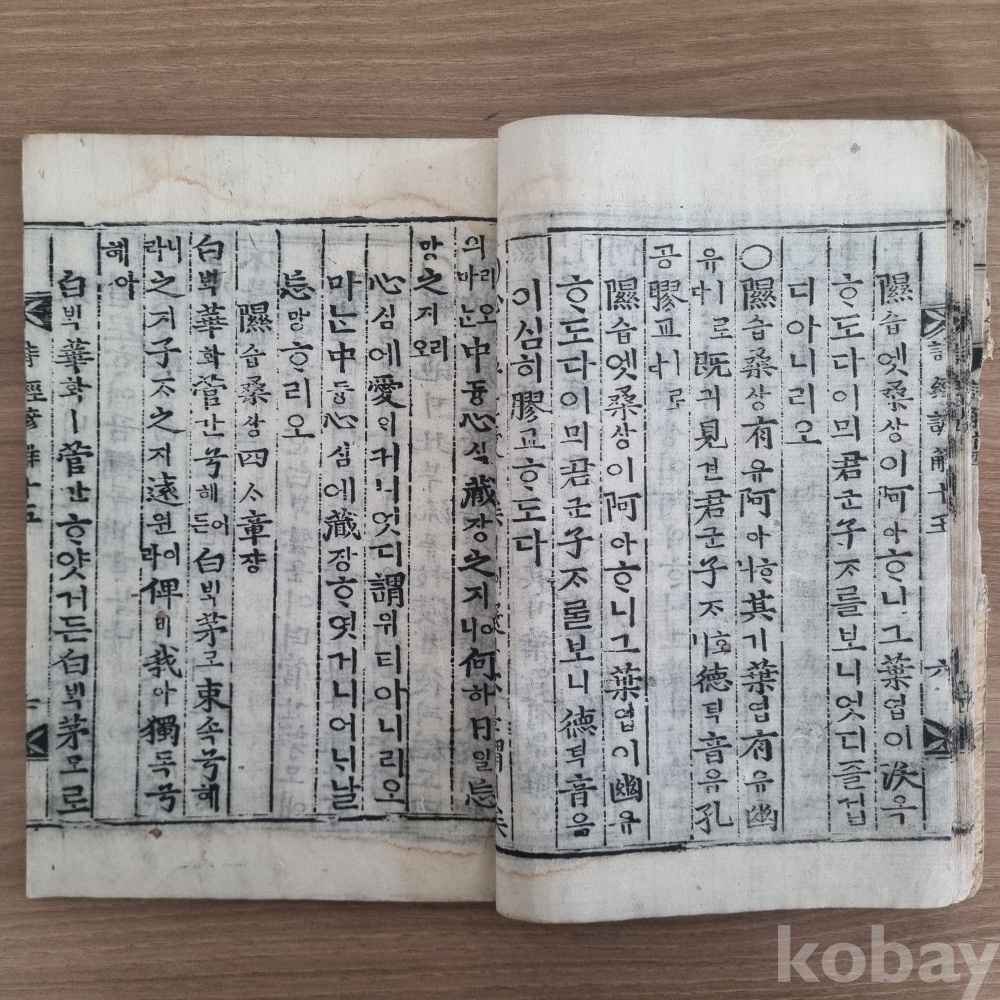 隰습엣桑상이阿아ᄒᆞ니그葉엽이沃옥
ᄒᆞ도다이믜君군子ᄌᆞ를보니엇디즐겁
디아니리오
○隰습桑상有유阿아ᄒᆞ니其기葉엽有유幽
유ㅣ로다旣긔見견君군子ᄌᆞ호니德덕音음孔
공膠교ㅣ로다
隰습엣桑상이阿아ᄒᆞ니그葉엽이幽유
ᄒᆞ도다이믜君군子ᄌᆞᄅᆞᆯ보니德덕音음
이심히膠교ᄒᆞ도다
詩經諺解十五
六
의마리오ᄂᆞᆫ中듕心심藏장之지어니何하日일忘
망之지리오
心심에愛ᄋᆡ커니엇디謂위티아니리오
마ᄂᆞᆫ中듕心심에藏장ᄒᆞ엿거니어ᄂᆞ날
忘망ᄒᆞ리오
隰습桑상四ᄉᆞ章쟝
白ᄇᆡᆨ華화菅간兮혜어든白ᄇᆡᆨ茅모束속兮혜
니라之지子ᄌᆞ之지遠원이라俾비我아獨독兮
혜아
白ᄇᆡᆨ華화ㅣ菅간ᄒᆞ얏거든白ᄇᆡᆨ茅모로
詩經諺解十五
kobay